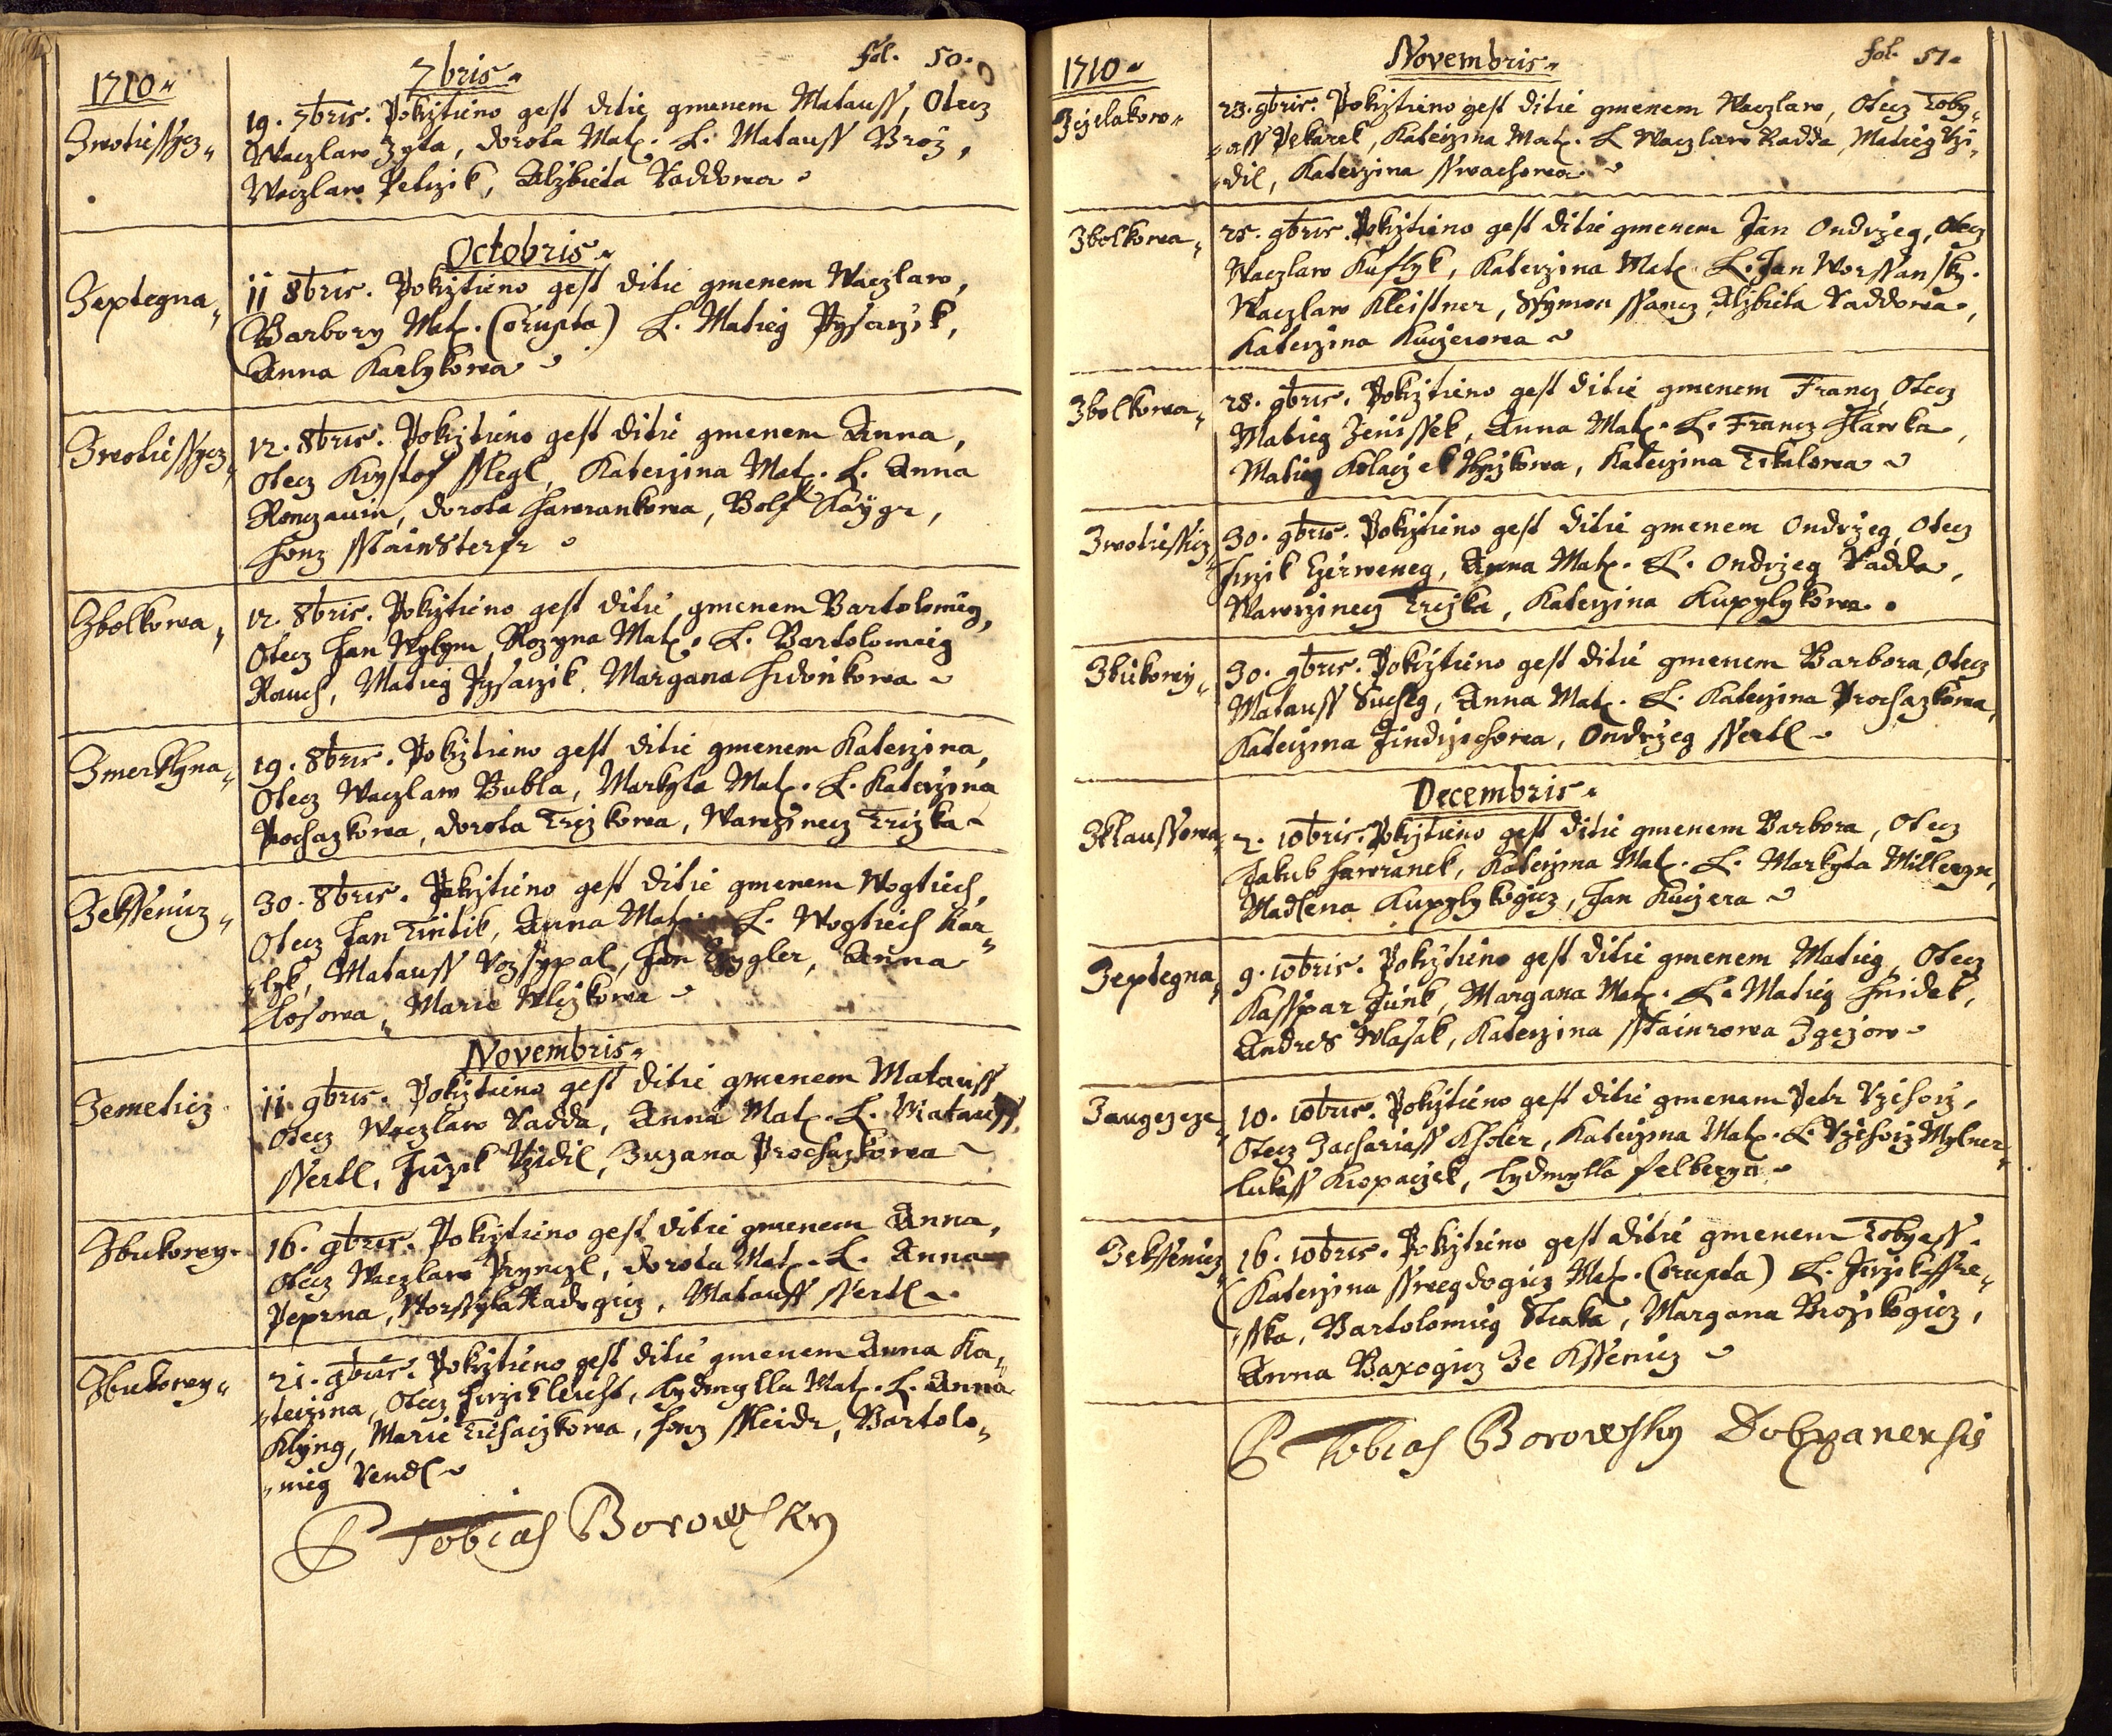 fol. 50.
1710
7bris
Zwotiessicz
19. 7bris. Pokrztieno gest ditie gmenem Matauss, Otecz
Waczlaw Zyta, dorota Mat. L. Matauss Broz,
Waczlaw Petrzik, Alzbieta Raddowa
Octobris
Zeptegna
11 8bris. Pokrztieno gest ditie gmenem Waczlaw,
Barbory Mat. (Corupta) L. Matieg Pysarzik,
Anna Karlykowa
Zwotiessycz
12. 8bris. Pokrztieno gest ditie gmenem Anna,
Otecz Krystof Sslegl, Katerzina Mat. L. Anna
dorota Hawrankowa, Bolf
Honz
Zbolkowa
12. 8bris. Pokrztieno gest ditie gmenem Bartolomieg,
Otecz Jan Wylym, Rozyna Mat. L. Bartolomieg
Rauch, Matieg Pysarzik, Margana
Zmerklyna
19. 8bris. Pokrztieno gest ditie gmenem Katerzina,
Otecz Waczlaw Bubla, Markyta Mat. L. Katerzina
Prochazkowa, dorota Trczkowa, Wawrzinecz Trczka
Zekssenicz
30. 8bris. Pokrztieno gest ditie gmenem Wogtiech,
Otecz Jan Tintik, Anna Mat. L. Wogtiech Kar-
lyk, Matauss Rozsypal, Jan Czygler, Anna
Klosowa, Marie Wlczkowa
Novembris
Zemeticz
11. 9bris. Pokrztieno gest ditie gmenem Matauss
Otecz Waczlaw Radda, Anna Mat. L. Matauss
Ssertl, Jirzik Rzidil, Zuzana Prochazkowa
Zbukowy
16. 9bris. Pokrztieno gest ditie gmenem Anna,
Otecz Waczlaw Pryncyl, dorota Mat. L. Anna
Peprna, Worssyla Kadrgicz, Matauss Ssertl
Zbukowy
21. 9bris. Pokrztieno gest ditie gmenem Anna Ka-
terzina, Otecz Jirzik Leicht, Lydmylla Mat. L. Anna
Klyng, Marie Tichaczkowa, Honz Ssleidr, Bartolo-
mieg Vendl
P Tobias Borowsky
fol. 51
1710
Novembris
Zczelakow
23. 9bris. Pokrztieno gest ditie gmenem Waczlaw, Otecz Toby-
ass Pekarek, Katerzina Mat. L Waczlaw Radda, Matieg Rzi-
dil, Katerzina Sswachowa
Zbolkowa
25. 9bris. Pokrztieno gest ditie gmenem Jan Ondrzeg, Otecz
Waczlaw Kuslyk, Katerzina Mat. L. Jan Worssansky.
Waczlaw Kleistner, Ssymon Alzbieta Raddowa,
Katerzina Kuczerowa
Zbolkowa
28. 9bris. Pokrztieno gest ditie gmenem Francz, Otecz
Matieg Jenissek, Anna Mat. L. Francz Hlawka,
Matieg Kolaczek Katerzina Tikalowa
Zwotiessicz
30. 9bris. Pokrztieno gest ditie gmenem Ondrzeg, Otecz
Jirzik Czerweneg, Anna Mat. L. Ondrzeg Radda,
Wawrzinecz Trczka, Katerzina Kupylykowa
Zbukowy
30. 9bris. Pokrztieno gest ditie gmenem Barbora, Otecz
Matauss Sucheg, Anna Mat. L. Katerzina Prochazkowa,
Katerzina Jindrzichowa, Ondrzeg Ssertl
Decembris
Zklaussowa
2. 10bris. Pokrztieno gest ditie gmenem Barbora, Otecz
Jakub Hawranek, Katerzina Mat. L. Markyta Millergn,
Madlena Kupylykogicz, Jan Kuczera
Zeptegna
9. 10bris. Pokrztieno gest ditie gmenem Matieg, Otecz
Kasspar Junk, Margana Mat. L. Matieg Hnidek,
Andres Wlasak, Katerzina Sstainrowa Zgezow
Zaugezcze
10. 10bris. Pokrztieno gest ditie gmenem Petr Rzehorz,
Otecz Zachariass Kholer, Katerzina Mat. L. Rzehorz Mylner
Lukass Kropaczek, Lydmylla Felbergn
Zekssenicz
16. 10bris. Pokrztieno gest ditie gmenem Tobyass.
Katerzina Sswegdogicz Mat. (Corupta) L. Jirzik Sstre-
sska, Bartolomieg Straka, Margana Brozikogicz,
Anna Baxogicz Ze Kssenicz
P Tobias Borowsky Dobrzanensis